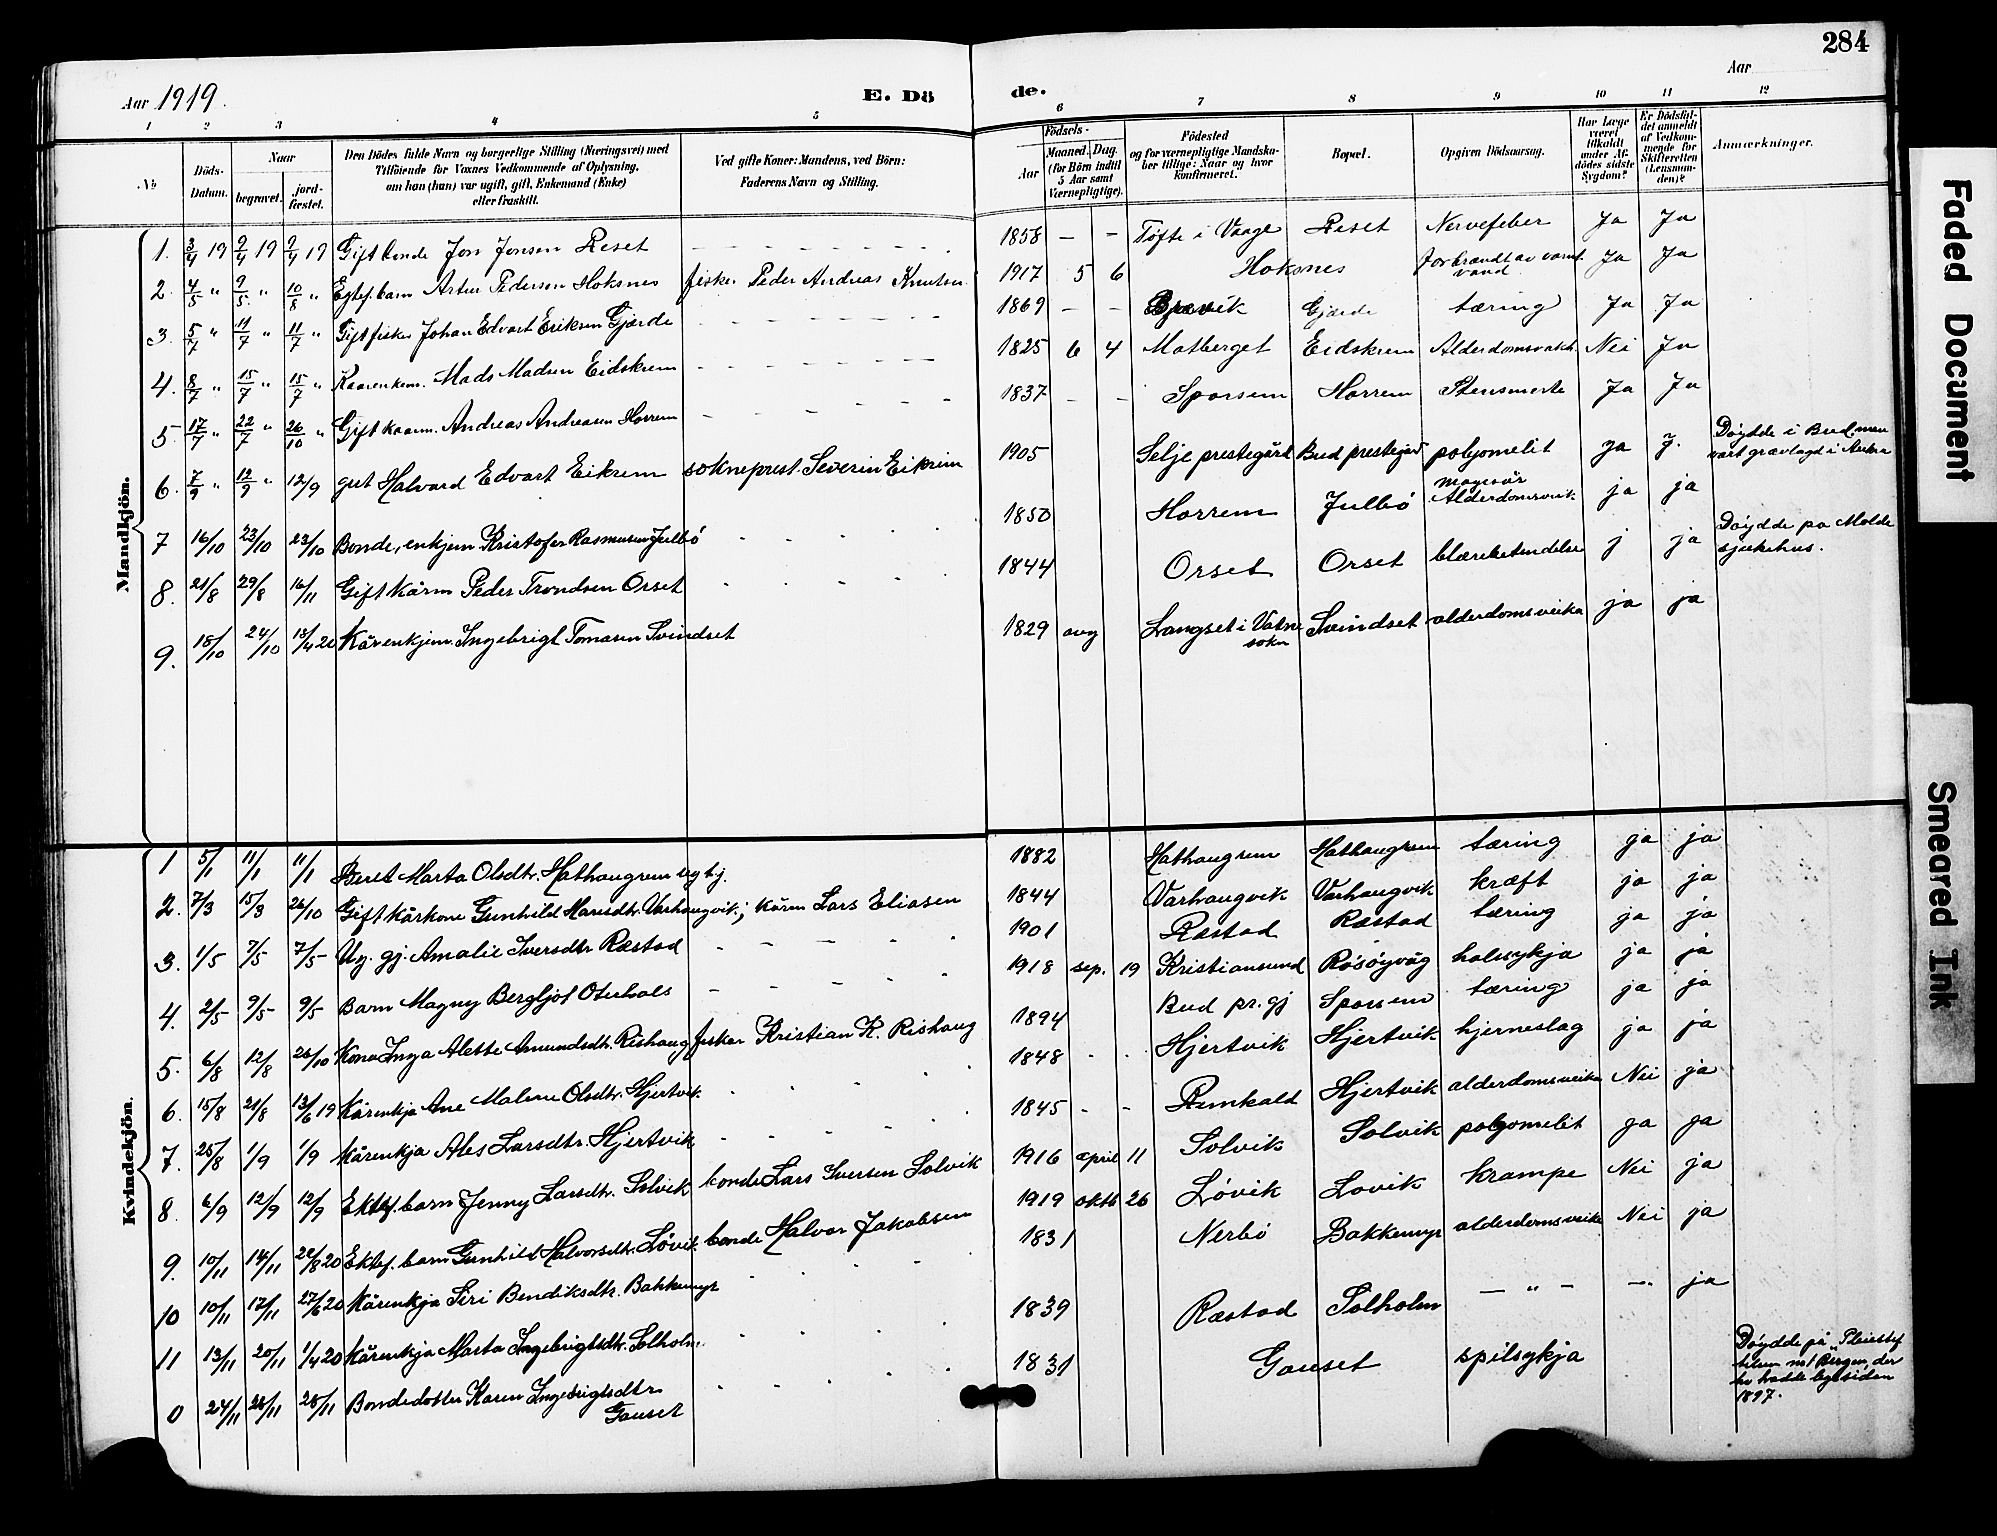 284
Aar 1919.
E. Dö
de.
Aar
1 2 3 4 5 6 7 8 9 10 11 12
No
Döds-
Datum.
Naar
begravet.
jord-
fæstet.
Den Dödes fulde Navn og borgerlige Stilling (Næringsvei) med
Tilföiende for Voxnes Vedkommende af Oplysning,
om han (hun) var ugift, gift, Enkemand (Enke)
eller fraskilt.
Ved gifte Koner: Mandens, ved Börn:
Faderens Navn og Stilling.
Födsels-
Aar
Maaned. Dag.
(for Börn indtil
5 Aar samt
Værnepligtige).
Födested
og for værnepligtige Mandska-
ber tillige: Naar og hvor
konfirmeret.
Bopæl.
Opgiven Dödsaarsag.
Har Læge
været
tilkaldt
under Af-
dödes sidste
Sygdom?
Er Dödsfal-
det anmeldt
af Vedkom-
mende for
Skifteretten
(Lensman-
den)?
Anmærkninger.
Mandkjön.
1. 3/4 19 9/4 19 9/4 19 Gift bonde Jon Jonsen Reset - - - 1858 - - Tøfte i Vaage Reset Nervefeber Ja Ja
2. 4/5 " 9/5 " 10/8 " Egtef. barn Artur Pedersen Hoksnes fisker Peder Andreas Knutsen 1917 5 6 Hoksnes forbrændt av varmt vand Ja Ja
3. 5/7 " 11/7 " 11/7 " Gift fisker Johan Edvart Eriksen Gjærde - - - 1869 - - Gjærde tæring Ja Ja
4. 8/7 " 15/7 " 15/7 " Kaarenkem. Mads Madsen Eidskrem - - - 1825 6 4 Malberget Eidskrem Alderdomsvakh. Nei Ja
5. 17/7 " 22/7 " 26/10 " Gift kaarm. Andreas Andreasen Horrem - - - 1837 - - Sporsem Horrem Stensmerte Ja Ja
6. 7/9 " 12/9 " 12/9 gut Halvard Edvart Eikrem sokneprest Severin Eikrem 1905 Selje prestegård Bud prestegård polyomelit ja j. Døydde i Bud, men vart gravlagd i Aukra
7 16/10 23/10 23/10 Bonde, enkjem Kristofer Rasmusen Julbö 1850 Horrem Julbö magesår Alderdomsveik ja ja
8. 21/8 29/8 16/11 Gift kårm Peder Trondsen Orset 1844 Orset Orset blærebetendelse j ja Døydde pa Molde sjukehus.
9. 18/10 24/10 18/4 20 Kårenkjem. Ingebrigt Tomasen Svindset 1829 aug Langset i Vatne sokn Svindset alderdomsveika ja ja
Kvindekjön.
1 5/1 11/1 11/1 Beret Marta Olsdtr. Hathaugrem ug tj. 1882 Hathaugrem Hathaugrem tæring ja ja
2. 7/3 15/3 26/10 Gift kårkone Gunhild Hansdtr. Varhaugvik; kårm Lars Eliasen 1844 Varhaugvik Varhaugvik kræft ja ja
3. 1/5 7/5 7/5 Ug. gj. Amalie Iversdtr Ræstad 1901 Ræstad Ræstad tæring ja ja
4. 2/5 9/5 9/5 Barn Magny Bergljot Oterhals 1918 sep. 19 Kristiansund Røsøyvåg halssykja ja ja
5. 6/8 12/8 26/10 Kona Inga Alette Amundsdtr. Rishaug fisker Kristian K. Rishaug 1894 Bud pr.gj Sporsem tæring ja ja
6. 15/8 21/8 13/6 19 Kårenkja Ane Malene Olsdtr. Hjertvik 1848 Hjertvik Hjertvik hjerneslag ja ja
7. 25/8 1/9 1/9 Kårenkja Ales Larsdtr. Hjertvik 1845 - - Remkald Hjertvik alderdomsveika Nei ja
8. 6/9 12/9 12/9 Ektef. barn Jenny Larsdtr. Solvik bonde Lars Iversen Solvik 1916 april 11 Solvik Solvik polyomelit ja ja
9. 10/11 14/11 22/8 20 Ektef. barn Gunhild Halvorsdtr. Løvik bonde Halvor Jakobsen 1919 oktb 26 Løvik Lovik krampe Nei ja
10 10/11 17/11 27/6 20 Kårenkja Siri Bendiksdtr. Bakkemyr 1831 Nerbø Bakkemyr alderdomsveika Nei ja
11 13/11 20/11 1/4 20 Kårenkja Marta Ingebrigtsdtr. Solholm 1839 Ræstad Solholm - " - - " ja
0 24/11 28/11 28/11 Bondedotter Karen Ingebrigtsdtr Gauset 1831 Gauset spilsykja Døydde på Bergen, der ho hadde lege siden 1897.
Faded Document
Smeared Ink